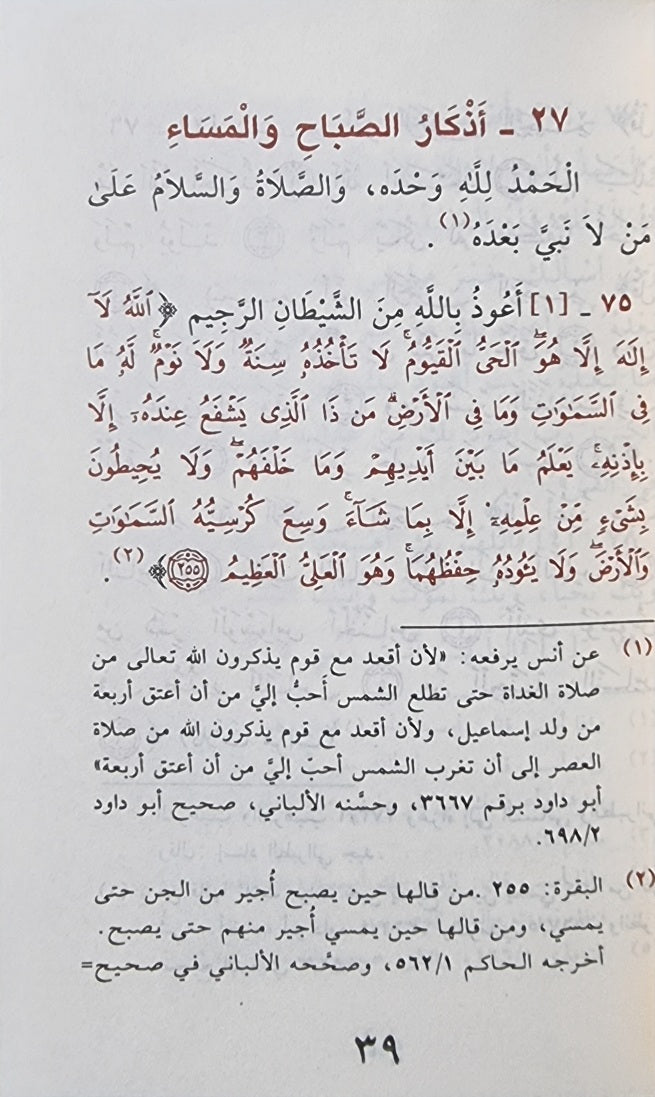 ٢٧ ـ أَذْكَارُ الصَّبَاحِ وَالْمَسَاءِ
الْحَمْدُ لِلَّهِ وَحْدَه، وَالصَّلَاةُ وَالسَّلَامُ عَلَىٰ
مَنْ لَا نَبِيَّ بَعْدَهُ(١).
٧٥ ـ [١] أَعُوذُ بِاللَّهِ مِنَ الشَّيْطَانِ الرَّجِيمِ ﴿ٱللَّهُ لَآ
إِلَٰهَ إِلَّا هُوَ ۖ ٱلْحَىُّ ٱلْقَيُّومُ ۚ لَا تَأْخُذُهُۥ سِنَةٌ وَلَا نَوْمٌ ۚ لَّهُۥ مَا
فِى ٱلسَّمَٰوَٰتِ وَمَا فِى ٱلْأَرْضِ ۗ مَن ذَا ٱلَّذِى يَشْفَعُ عِندَهُۥٓ إِلَّا
بِإِذْنِهِۦ ۚ يَعْلَمُ مَا بَيْنَ أَيْدِيهِمْ وَمَا خَلْفَهُمْ ۖ وَلَا يُحِيطُونَ
بِشَىْءٍ مِّنْ عِلْمِهِۦٓ إِلَّا بِمَا شَآءَ ۚ وَسِعَ كُرْسِيُّهُ ٱلسَّمَٰوَٰتِ
وَٱلْأَرْضَ ۖ وَلَا يَـُٔودُهُۥ حِفْظُهُمَا ۚ وَهُوَ ٱلْعَلِىُّ ٱلْعَظِيمُ ٢٥٥﴾(٢).
(١) عن أنس يرفعه: «لأن أقعد مع قوم يذكرون الله تعالى من
صلاة الغداة حتى تطلع الشمس أَحبُّ إليَّ من أن أعتق أربعة
من ولد إسماعيل، ولأن أقعد مع قوم يذكرون الله من صلاة
العصر إلى أن تغرب الشمس أحبّ إليَّ من أن أعتق أربعة»
أبو داود برقم ٣٦٦٧، وحسَّنه الألباني، صحيح أبو داود
٦٩٨/٢.
(٢) البقرة: ٢٥٥ .من قالها حين يصبح أُجير من الجن حتى
يمسي، ومن قالها حين يمسي أُجير منهم حتى يصبح.
أخرجه الحاكم ٥٦٢/١، وصحَّحه الألباني في صحيح=
٣٩